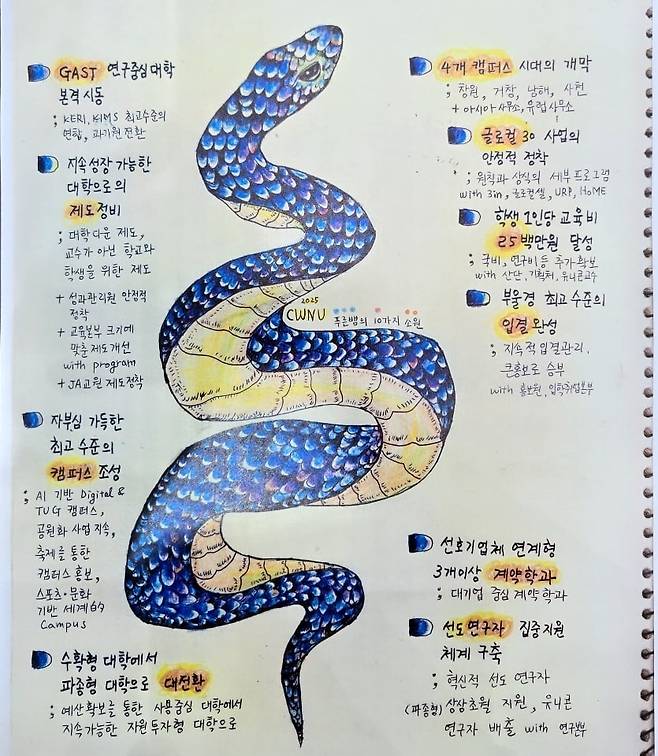 GAST 연구중심대학
본격 시동
; KERI, KIMS 최고수준의
연합, 과기원 전환
지속성장 가능한
대학으로의
제도정비
; 대학다운 제도,
교수가 아닌 학교와
학생을 위한 제도
+ 성과관리원 안정적
정착
+ 교육본부 크기에
맞춘 제도개선
with program
+ JA교원 제도정착
자부심 가득한
최고 수준의
캠퍼스 조성
; AI 기반 Digital &
TUG 캠퍼스,
공원화 사업 지속,
축제를 통한
캠퍼스 홍보,
스포츠·문화
기반 세계的
Campus
수확형 대학에서
파종형 대학으로 대전환
; 예산확보를 통한 사용중심 대학에서
지속가능한 자원 투자형 대학으로
2025
CWNU 푸른뱀의 10가지 소원
4개 캠퍼스 시대의 개막
; 창원, 거창, 남해, 사천
+ 아시아사무소, 유럽사무소
글로컬 30 사업의
안정적 정착
; 원칙과 상식의 세부프로그램
with 3in, 글로컬셀, URP, HoME
학생 1인당 교육비
25 백만원 달성
; 국비, 연구비 등 추가확보
with 산단, 기획처, 유니콘교수
부울경 최고수준의
입결 완성
; 지속적 입결관리,
큰홍보로 승부
with 홍보원, 입학취업본부
선호기업체 연계형
3개이상 계약학과
; 대기업 중심 계약학과
선도연구자 집중지원
체계 구축
; 혁신적 선도 연구자
(파종형) 상상초월 지원, 유니콘
연구자 배출 with 연구부